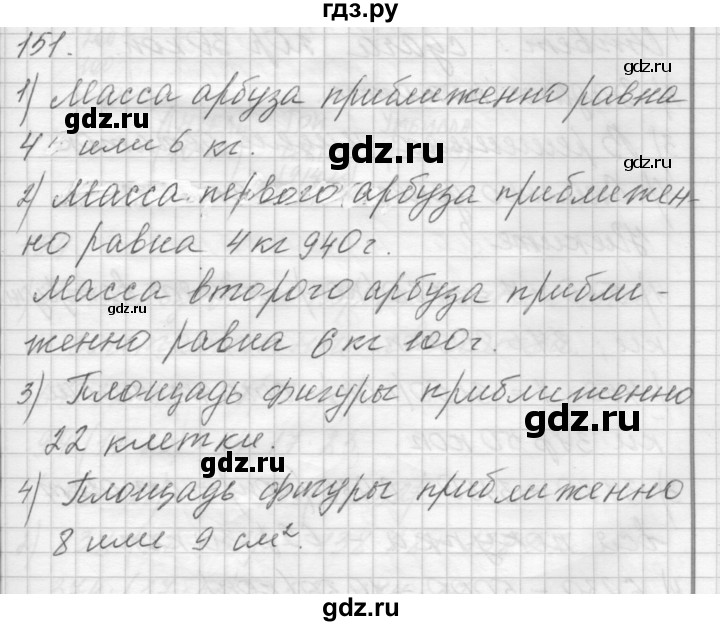 гдз.ру
151.
gdz.ru
1) Масса арбуза приближенно равна
gdz.ru
gdz.ru
4 или 6 кг.
gdz.ru
2) Масса первого арбуза приближен-
gdz.ru
но равна 4 кг 940 г.
Масса второго арбуза прибли-
gdz.ru
женно равна 6 кг 100 г.
3) Площадь фигуры приближенно
gdz.ru
22 клетки.
gdz.ru
4) Площадь фигуры приближенно
8 или 9 см².
gdz.ru
gdz.ru